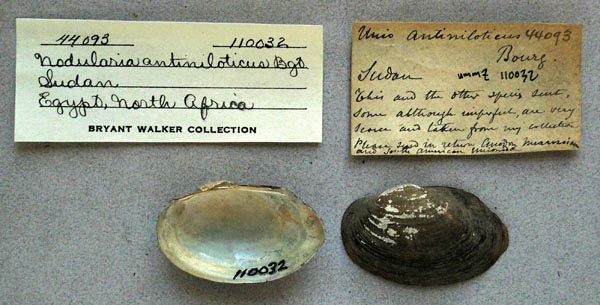 44093 110032
Nodularia antiniloticus Bgt
Sudan
Egypt, North Africa
BRYANT WALKER COLLECTION
Unio Antiniloticus 44093
Bourg.
Sudan ummz 110032
This and the other species sent,
some although imperfect, are very
scarce and taken from my collection
Please send in return Anodon
and South American
110032